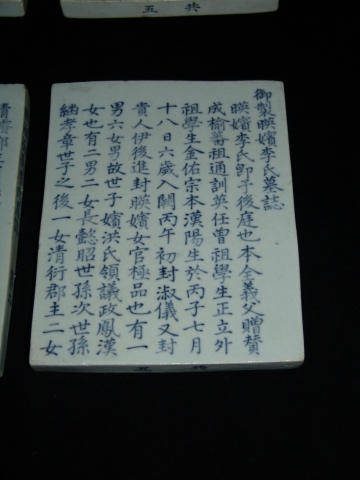 共五
御製暎嬪李氏墓誌
暎嬪李氏卽予後庭也本全義父贈贊
成榆蕃祖通訓英任曾祖學生正立外
祖學生金佑宗本漢陽生於丙子七月
十八日六歲入闕丙午初封淑儀又封
貴人伊後進封暎嬪女官極品也有一
男六女男故世子嬪洪氏領議政鳳漢
女也有二男二女長懿昭世孫次世孫
繼孝章世子之後一女清衍郡主二女
共五